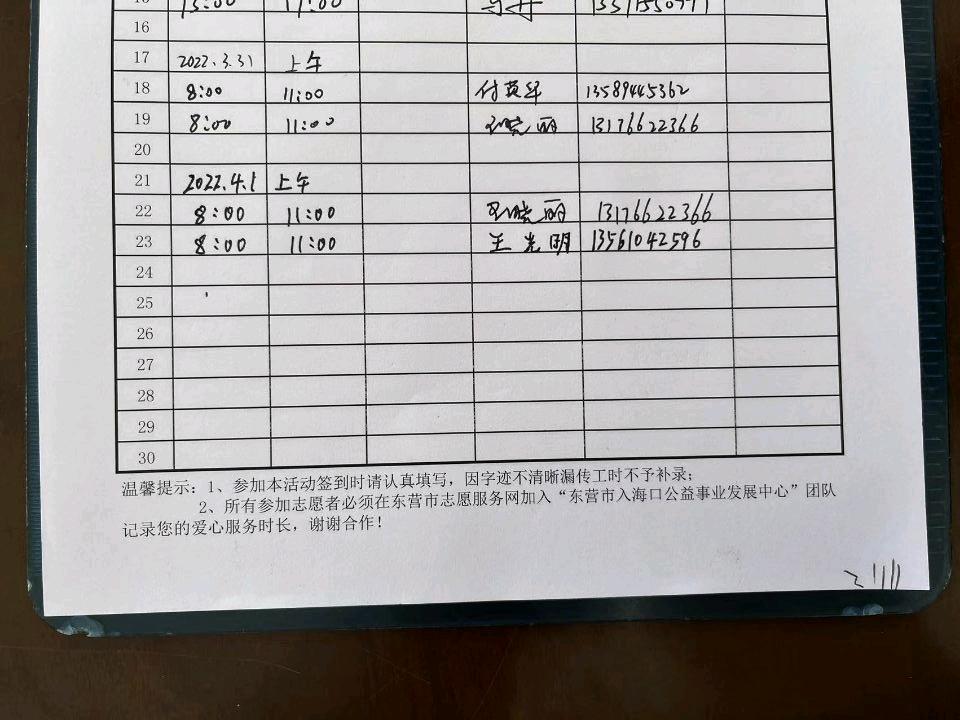 16
17 2022.3.31 上午
18 8:00 11:00 付英华 13589445362
19 8:00 11:00 王晓丽 13176622366
20
21 2022.4.1 上午
22 8:00 11:00 王晓丽 13176622366
23 8:00 11:00 王光明 13561042596
24
25
26
27
28
29
30
温馨提示:1、参加本活动签到时请认真填写,因字迹不清晰漏传工时不予补录;
2、所有参加志愿者必须在东营市志愿服务网加入“东营市入海口公益事业发展中心”团队
记录您的爱心服务时长,谢谢合作!